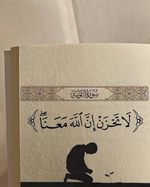 سورة التوبة
﴿ لَا تَحْزَنْ إِنَّ اللَّهَ مَعَنَا ﴾